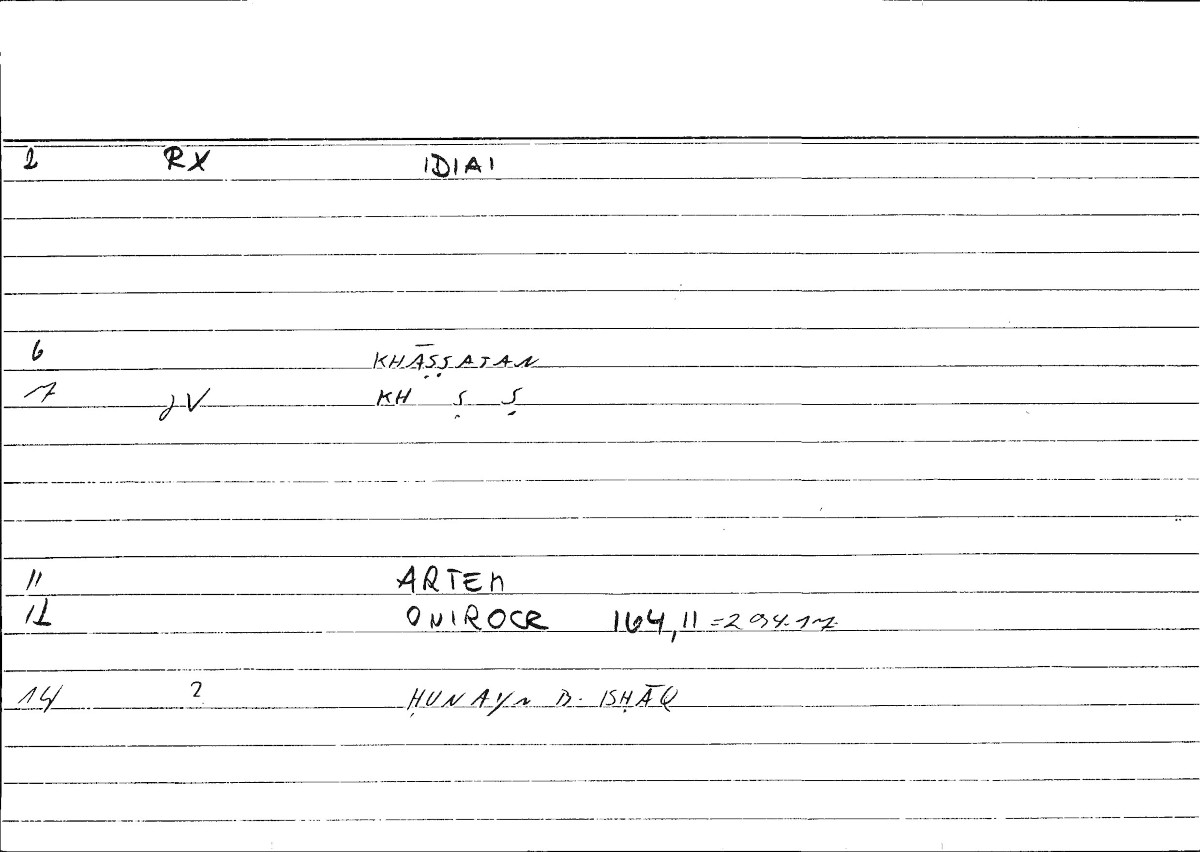 2 RX IDIAI
6 KHĀṢṢATAN
7 JV KH Ṣ Ṣ
11 ARTEM
12 ONIROCR 164,11 =294.17
14 2 ḤUNAYN B. ISḤĀQ